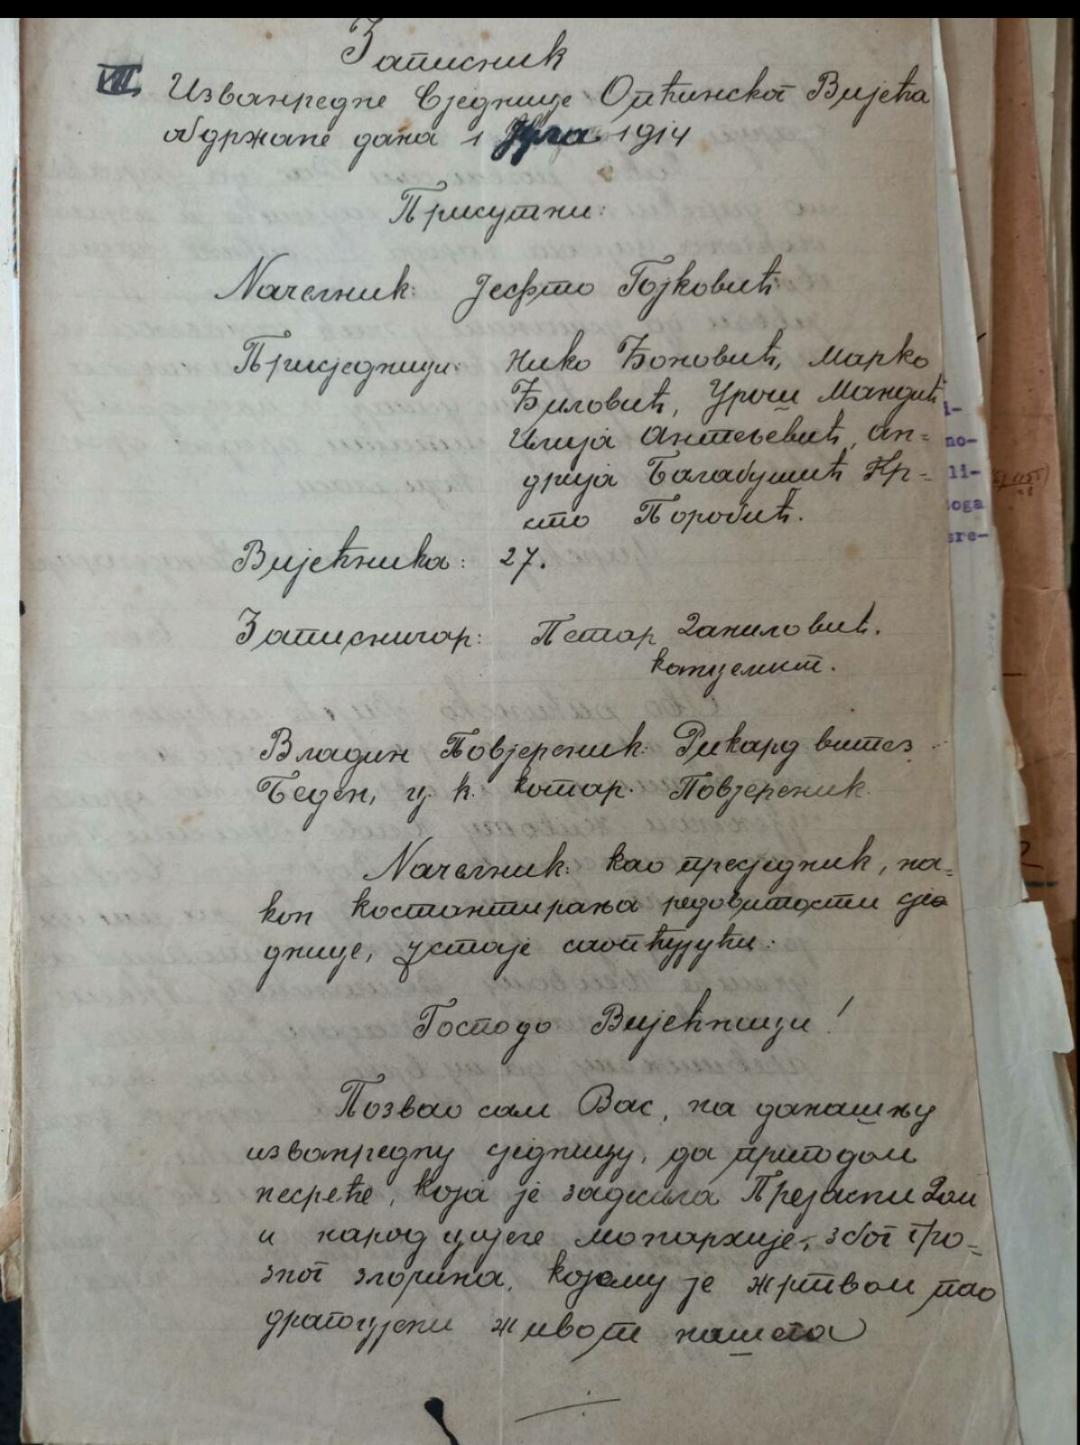 Записник
VII. Изванредне Сједнице Општинског Вијећа
обдржане дана 1 Јула 1914
Присутни:
Начелник: Јефто Гојковић
Присједници: Нико Ђоновић, Марко
Ђиловић, Урош Мандић
Илија Антељевић, Ан=
дрија Балабушић Кр=
сто Поробић.
Вијећника: 27.
Записничар: Петар Даниловић.
конципист.
Владин Повјереник: Рикард витез
Беден, ц. к. котар. Повјереник.
Начелник: као пресједник, на=
кон костантирања редовитости сје
днице, устаје саопћујући:
Господо Вијећници!
Позвао сам Вас, на данашњу
изванредну сједницу, да пригодом
несреће, која је задесила Прејасни Дом
и народ цијеле монархије, због гро=
зног злочина, којему је жртвом пао
драгоцјени живот нашега
i-
no-
li-
oga
sre-